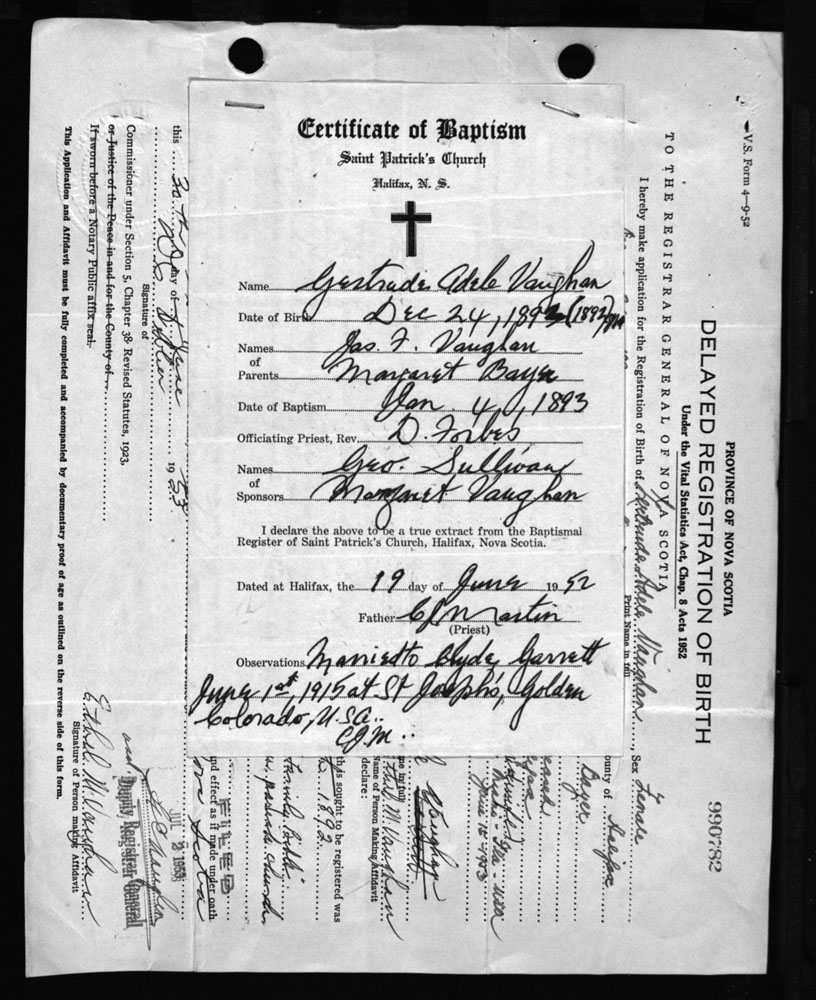 Certificate of Baptism
Saint Patrick's Church
Halifax, N. S.
Name Gertrude Adele Vaughan
Date of Birth Dec 24, 1892 (1892)
Names of Parents Jas. F. Vaughan
Margaret Bayer
Date of Baptism Jan. 4, 1893
Officiating Priest, Rev. D. Forbes
Names of Sponsors Geo. Sullivan
Margaret Vaughan
I declare the above to be a true extract from the Baptismal
Register of Saint Patrick's Church, Halifax, Nova Scotia.
Dated at Halifax, the 19 day of June 1952
Father CJ Martin
(Priest)
Observations Married to Clyde Garrett
June 1st, 1915 at St Joseph's, Golden
Colorado, U.S.A.
C.J.M.
V.S. Form 4—9-52
PROVINCE OF NOVA SCOTIA
DELAYED REGISTRATION OF BIRTH
Under the Vital Statistics Act, Chap. 8 Acts 1952
990782
TO THE REGISTRAR GENERAL OF NOVA SCOTIA
I hereby make application for the Registration of Birth of Gertrude Adele Vaughan, Sex Female
Print Name in full
ounty of Halifax
Bayer
June 15 - 1953
me in full Ethel M. Vaughan
Name of Person Making Affidavit
declare:
this sought to be registered was
1892.
family Bible
parish church,
FILED
nd effect as if made under oath
ova Scotia
this 30th day of June 1953
Signature of
Commissioner under Section 5, Chapter 38 Revised Statutes, 1923.
or Justice of the Peace in and for the County of
If sworn before a Notary Public affix seal.
JUL 3 1953
Deputy Registrar General
Ethel M. Vaughan
Signature of Person making Affidavit
This Application and Affidavit must be fully completed and accompanied by documentary proof of age as outlined on the reverse side of this form.